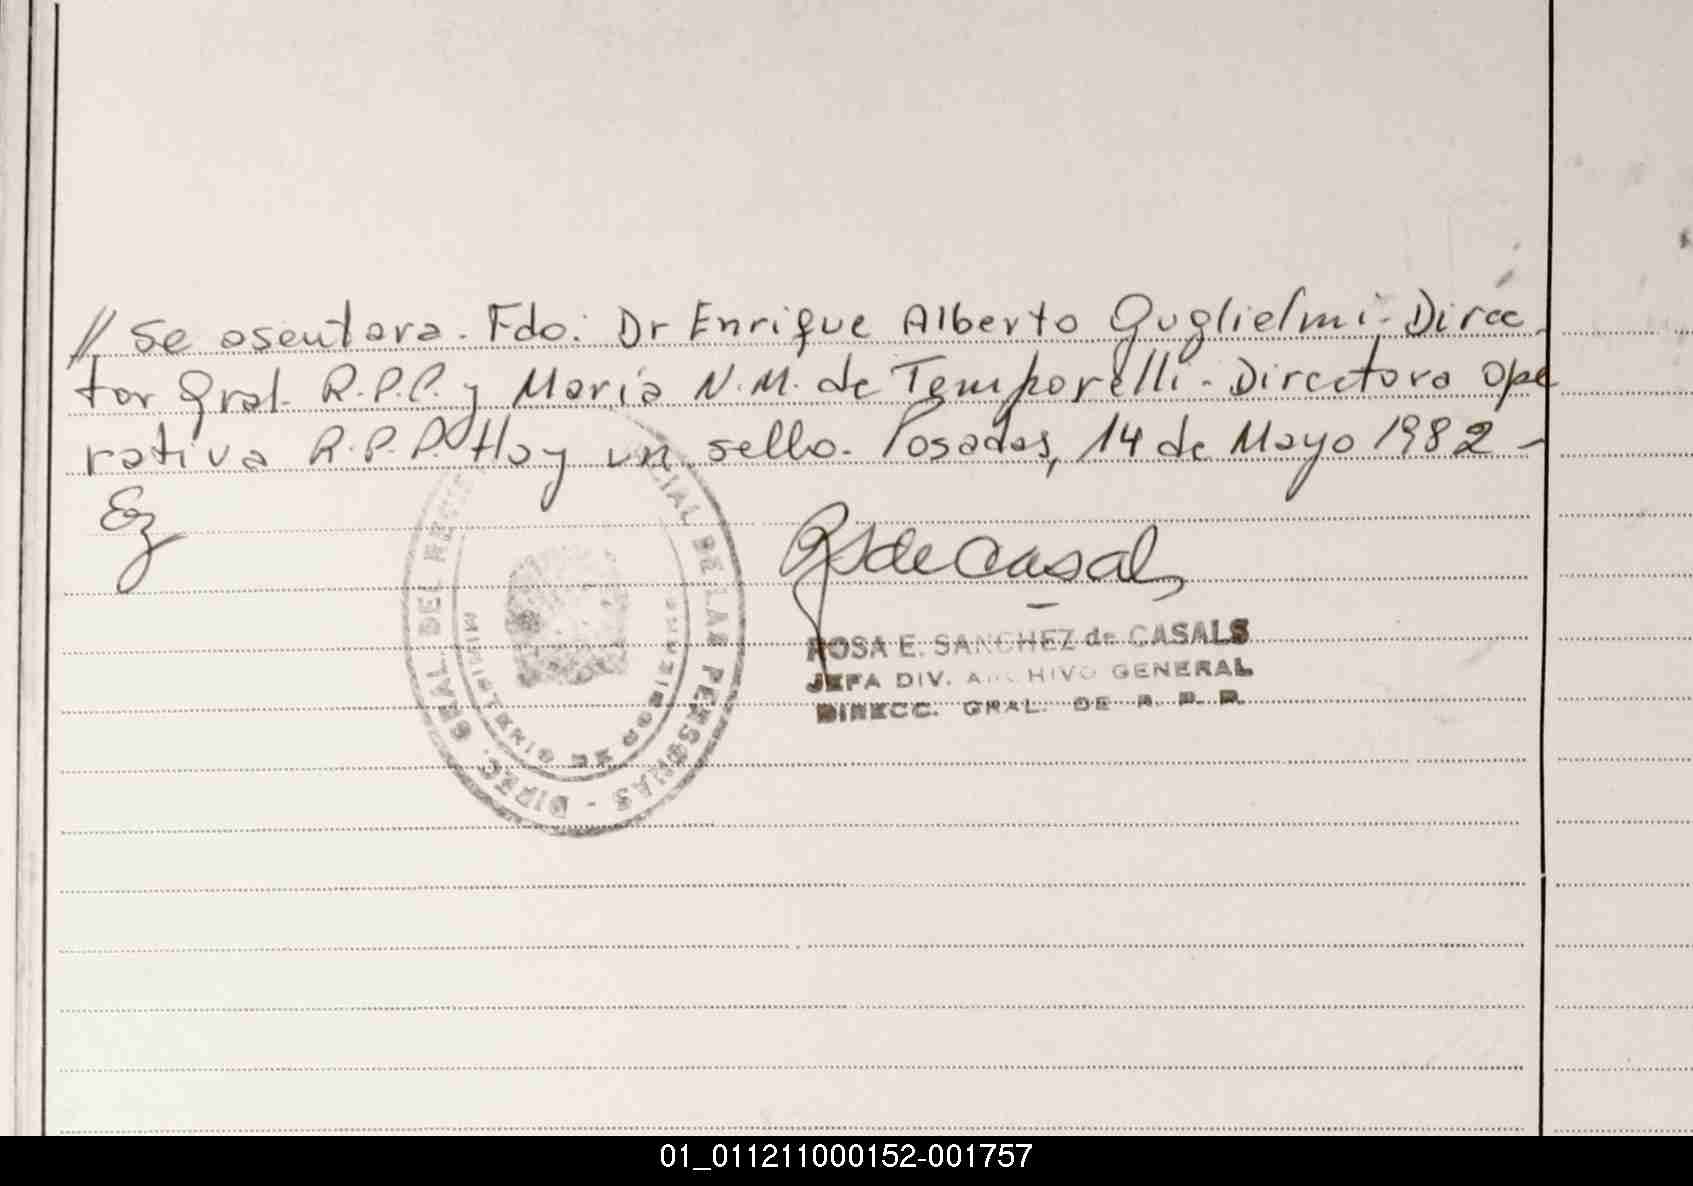 // Se asentara. Fdo: Dr Enrique Alberto Guglielmi - Direc-
tor Gral. R.P.P. y María N.M. de Temporelli - Directora Ope
rativa R.P.P. Hay un sello. Posadas, 14 de Mayo 1982 -
Ez
RSdeCasals
ROSA E. SANCHEZ de CASALS
JEFA DIV. ARCHIVO GENERAL
DIRECC. GRAL. DE R. P. P.
DIREC. GRAL. DEL PERSONAS
MINISTERIO DE GOBIERNO
01_011211000152-001757